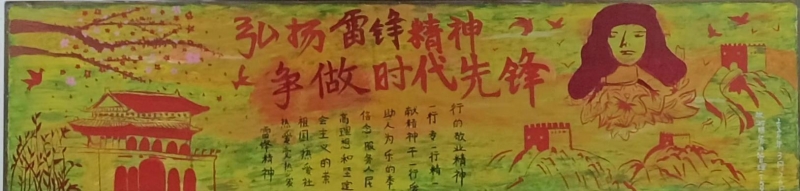 弘扬雷锋精神
争做时代先锋
行的敬业精神
一行专一行精一
献精神干一行爱
助人为乐的奉
信念服务人民
高理想和坚定
会主义的崇
祖国热爱社
热爱党热爱
雷锋精神